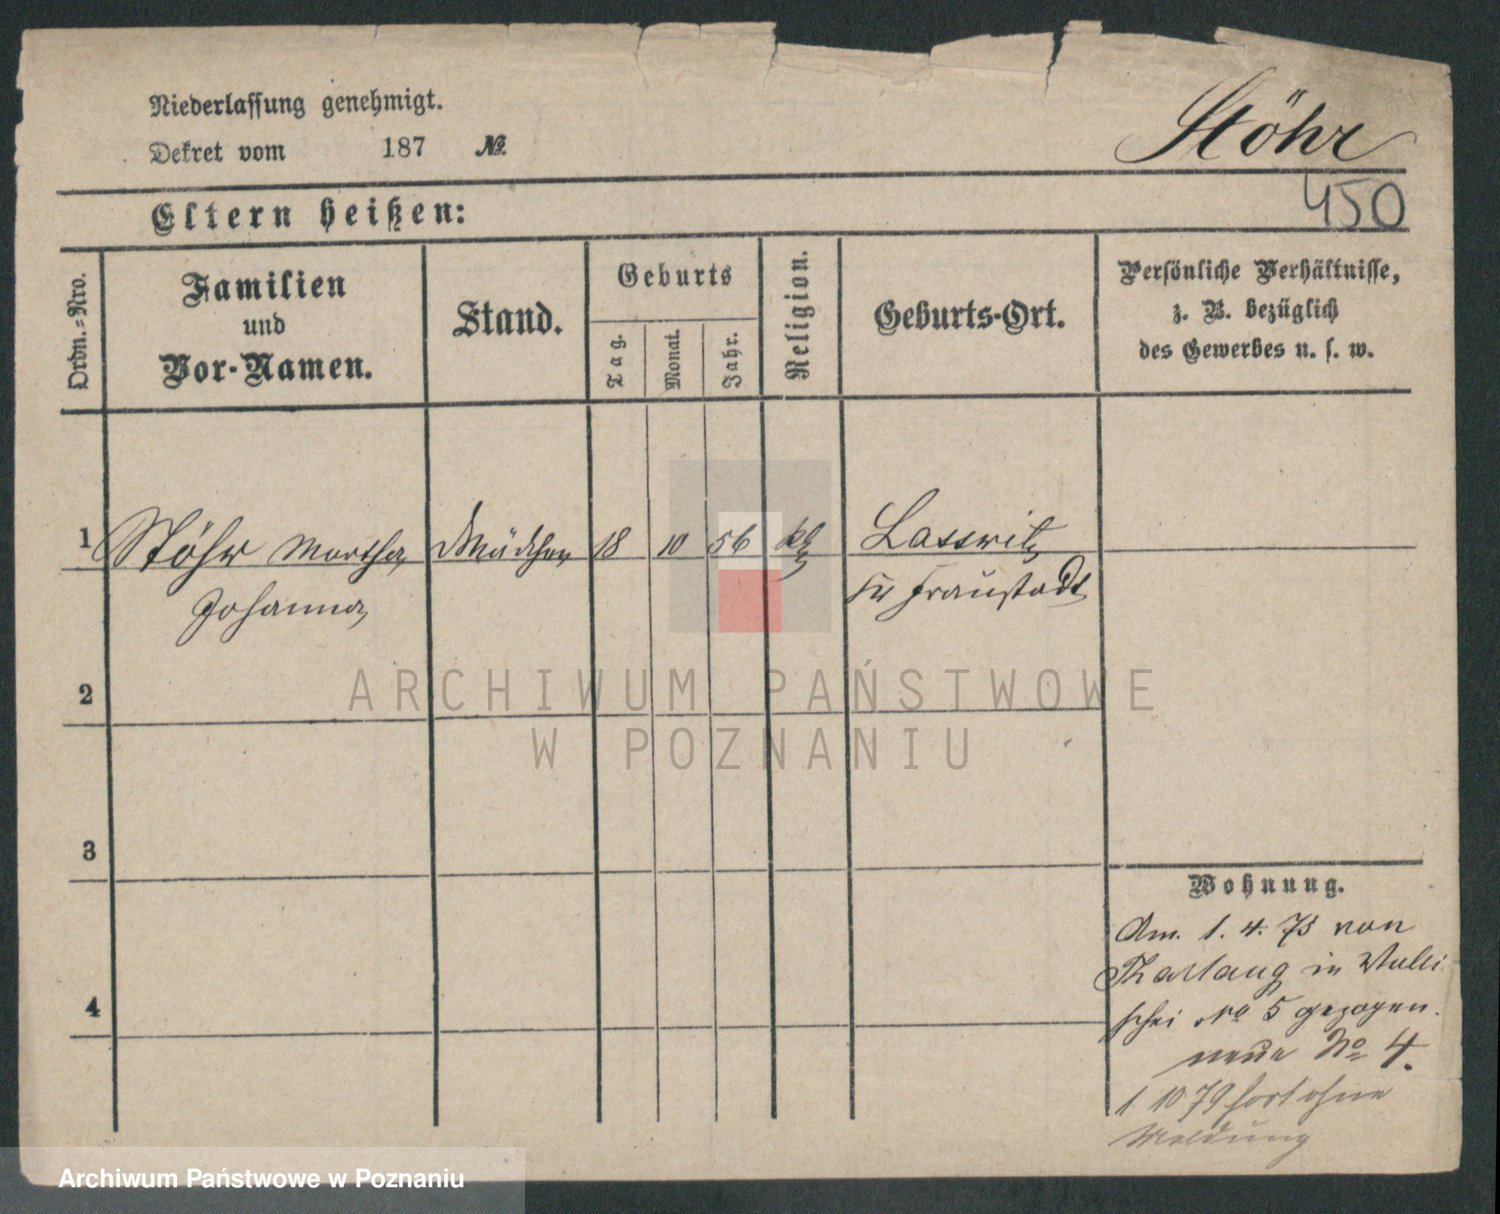 Niederlassung genehmigt.
Stöhr
Dekret vom 187 №.
450
Eltern heißen:
Ordn.-Nro.
Familien
und
Vor-Namen.
Stand.
Geburts
Tag.
Monat.
Jahr.
Religion.
Geburts-Ort.
Persönliche Verhältnisse,
z. B. bezüglich
des Gewerbes u. s. w.
1 Stöhr Martha Mädchen 18 10 56 Lasswitz
Johanna Fraustadt
2
ARCHIWUM PAŃSTWOWE
W POZNANIU
3
Wohnung.
Am. 1. 4. 75 von
in Walli
schei No 5 gezogen.
4
neue No 4.
1 10 79 fort ohne
Meldung
Archiwum Państwowe w Poznaniu